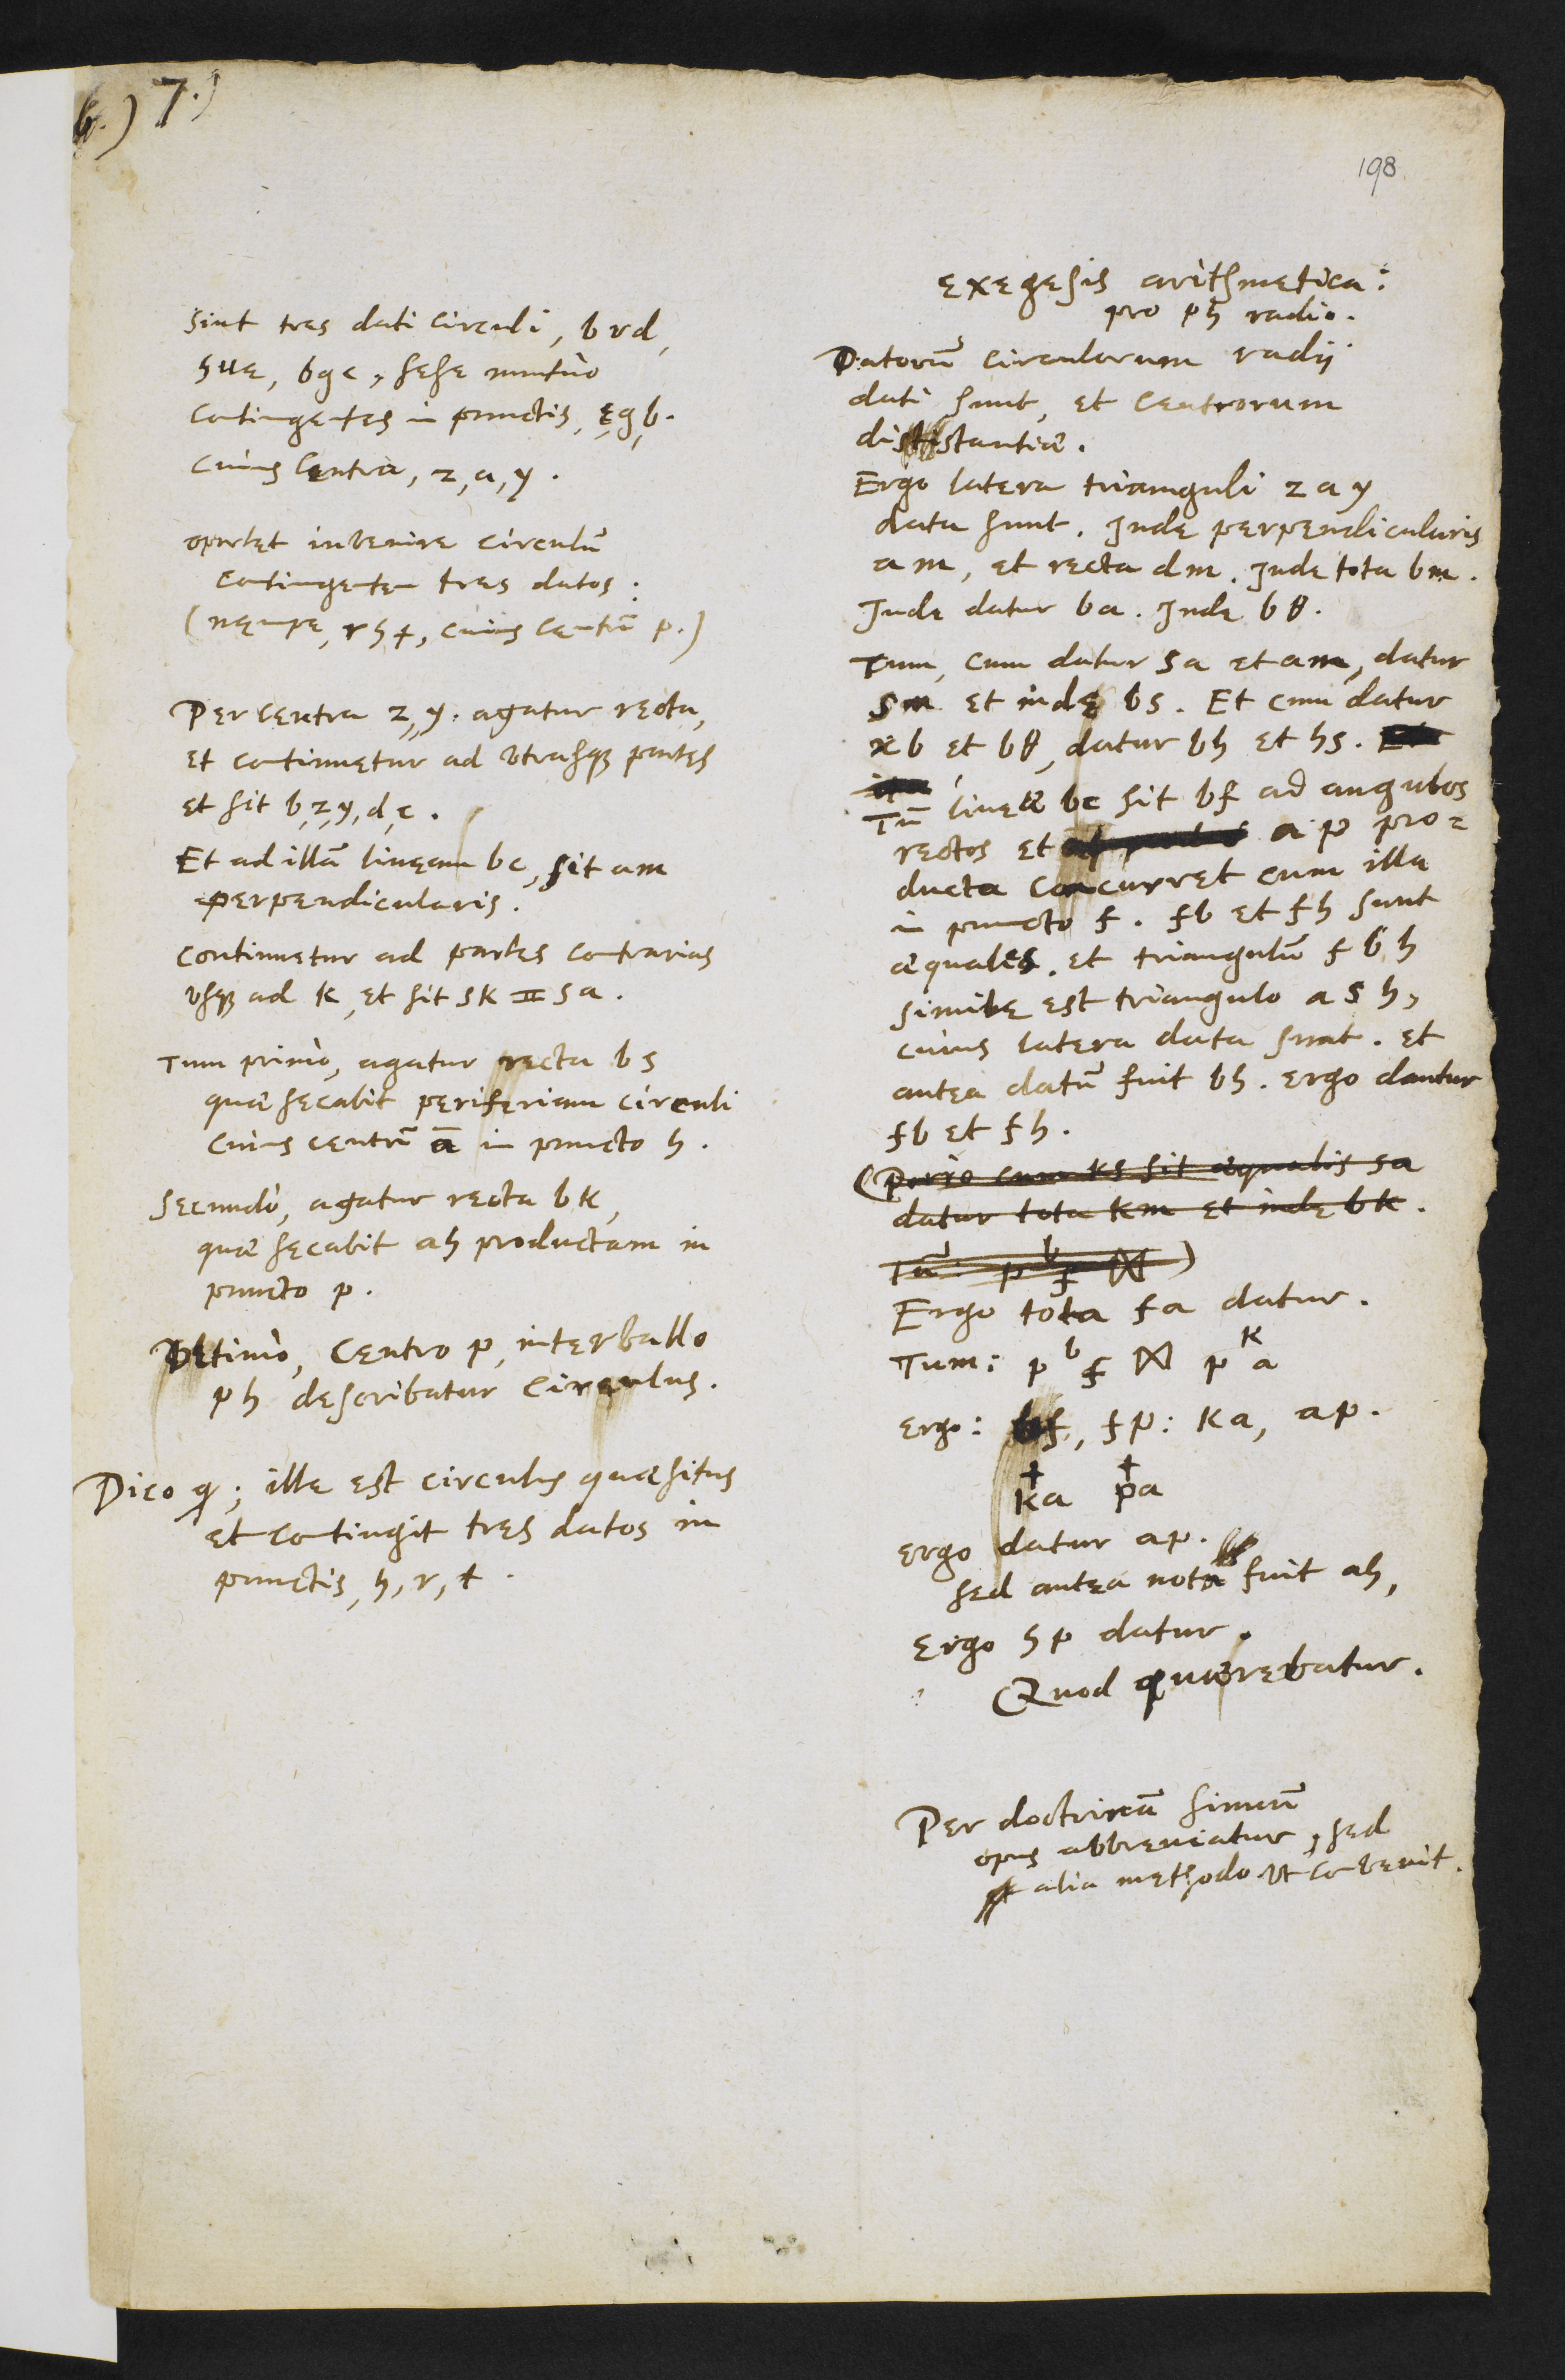 6.) 7.)
198
Sint tres dati circuli, brd,
hue, bgc, sese mutuò
contingentes in punctis, e,g,b.
cuius centra, z, a, y.
oportet invenire circulū
contingentem tres datos:
(nempe, rht, cuius centrū p.)
Per centra z, y. agatur recta,
et continuetur ad vtrasque partes
et sit b,z,y,d,c.
Et ad illā lineam bc, sit am
perpendicularis.
continuetur ad partes contrarias
vsque ad k, et sit sk = sa.
Tum primò, agatur recta bs
quæ secabit periferiam circuli
cuius centrū a in puncto h.
Secundò, agatur recta bk,
quæ secabit ah productam in
puncto p.
Vltimò, centro p, intervallo
ph describatur circulus.
Dico q; ille est circulus quæsitus
et contingit tres datos in
punctis, h, r, t.
exegesis arithmetica:
pro ph radio.
Datorū circulorum radij
dati sunt, et centrorum
distantiæ.
Ergo latera trianguli zay
data sunt. Inde perpendicularis
am, et recta dm. Inde tota bm.
Inde datur ba. Inde bθ.
Tum, cum datur sa et am, datur
sm et inde bs. Et cum datur
xb et bθ, datur bh et hs. Et
ita
Tū lineæ bc sit bf ad angulos
rectos et ap pro=
ducta concurret cum illa
in puncto f. fb et fh sunt
æquales. et triangulū fbh
simile est triangulo ash,
cuius latera data sunt. et
antea datū fuit bh. ergo dantur
fb et fh.
(Porro cum ks sit æqualis sa
datur tota km et inde bk.
Tū: p b f ⋈)
Ergo tota fa datur.
Tum: p b f ⋈ p k a
ergo: bf, fp: ka, ap.
+ +
ka pa
ergo datur ap.
sed antea nota fuit ah,
Ergo hp datur.
Quod quærebatur.
Per doctrinā sinuū
opus abbreviatur, sed
alia methodo vt convenit.